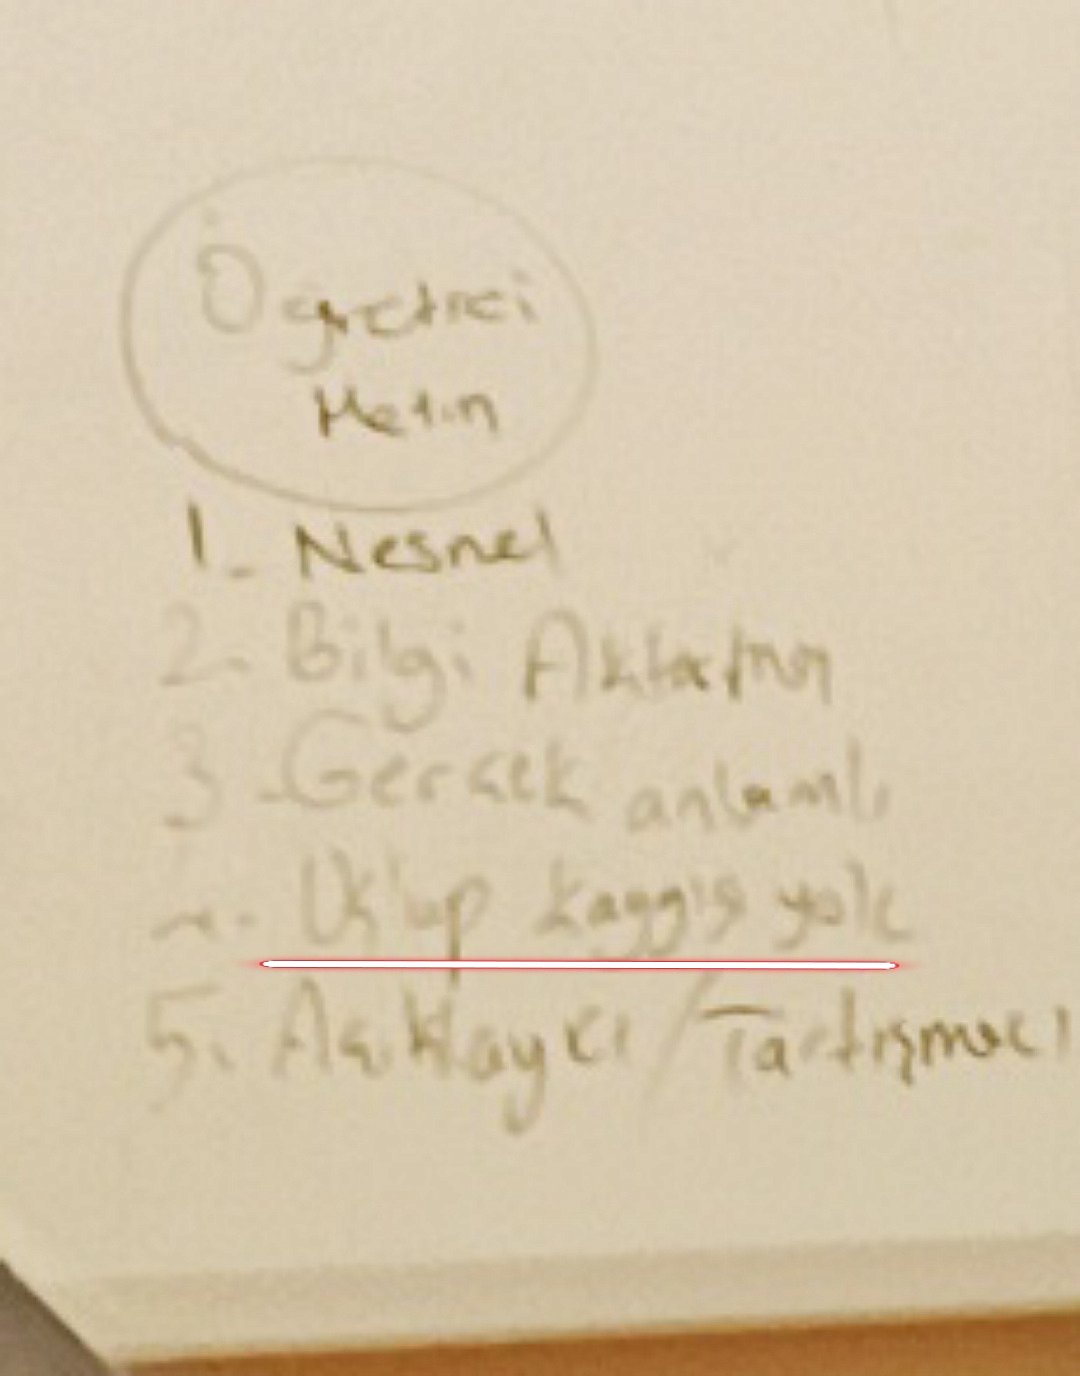 Öğretici
Metin
1. Nesnel
2. Bilgi Aktarımı
3. Gerçek anlamlı
Üslup kaygısı yok
5. Açıklayıcı / Tartışmacı